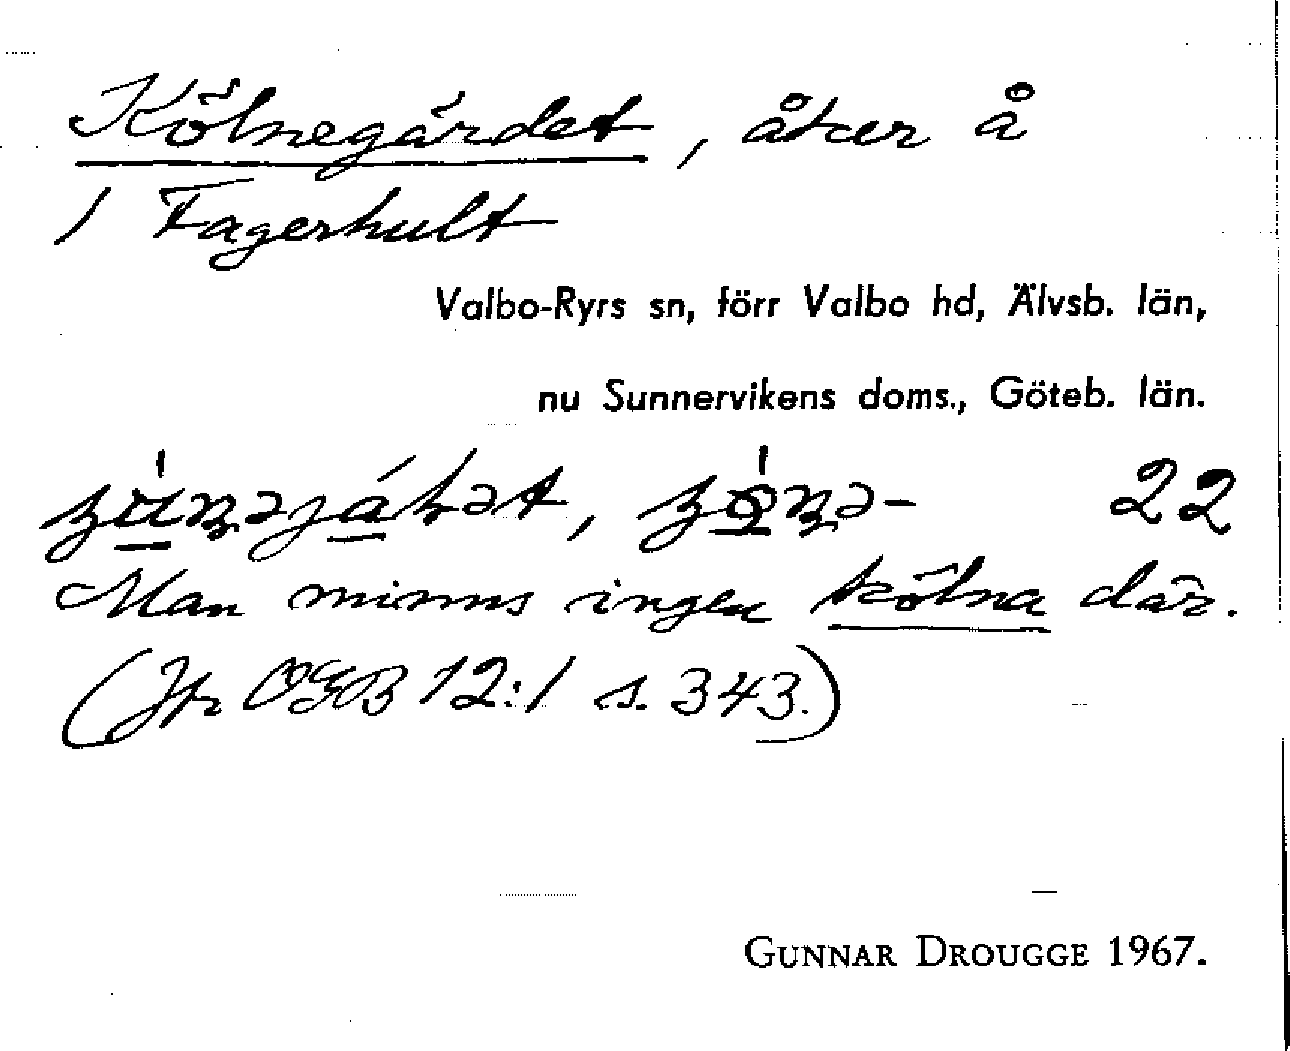 Kölnegärdet, åker å
1 Fagerhult
Valbo-Ryrs sn, förr Valbo hd, Älvsb. län,
nu Sunnervikens doms., Göteb. län.
22
Man minns ingen kölna där.
(Jfr OGB 12:1 s. 343.)
GUNNAR DROUGGE 1967.